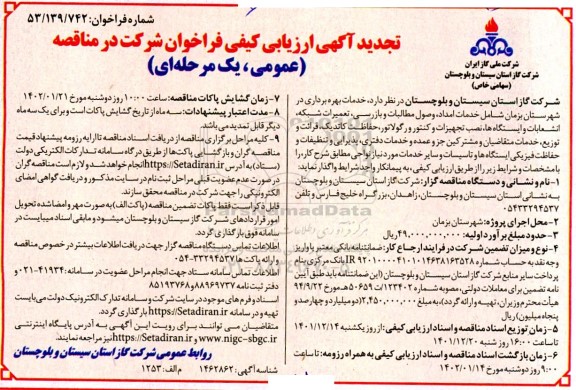 شماره فراخوان: ۵۳/۱۳۹/۷۴۲
تجدید آگهی ارزیابی کیفی فراخوان شرکت در مناقصه
(عمومی، یک مرحله‌ای)
شرکت ملی گاز ایران
شرکت گاز استان سیستان و بلوچستان
(سهامی خاص)
شرکت گاز استان سیستان و بلوچستان در نظر دارد، خدمات بهره برداری در
شهرستان بزمان شامل خدمات امداد، وصول مطالبات و بازرسی، تعمیرات شبکه،
انشعابات و ایستگاه ها، نصب تجهیزات و کنتور و رگولاتور، حفاظت کاتدیک، قرائت و
توزیع، خدمات متقاضیان و مشترکین جز و عمده و خدمات دفتری، پذیرایی و تنظیفات و
حفاظت فیزیکی ایستگاه ها و تاسیسات و سایر خدمات مورد نیاز نواحی مطابق شرح کار، را
با مشخصات و شرایط زیر را از طریق ارزیابی کیفی، به پیمانکار واجد شرایط واگذار نماید:
۱- نام و نشانی و دستگاه مناقصه گزار: شرکت گاز استان سیستان و بلوچستان
به نشانی استان سیستان و بلوچستان، زاهدان، بزرگراه خلیج فارس و تلفن
۰۵۴۳۳۲۹۴۵۳۷
۲- محل اجرای پروژه: شهرستان بزمان
۳- حدود مبلغ برآورد اولیه: ۴۹,۰۰۰,۰۰۰,۰۰۰ ریال
۴- نوع و میزان تضمین شرکت در فرایند ارجاع کار: ضمانتنامه بانکی معتبر یا واریز
وجه نقد به حساب شماره IR ۹۲۰۱۰۰۰۰۴۱۰۱۰۱۴۶۳۸۱۶۳۵۲۸ بانک مرکزی بنام
پرداخت سایر منابع شرکت گاز استان سیستان و بلوچستان (این ضمانتنامه باید طبق آیین
نامه تضمین برای معاملات دولتی، مصوبه شماره ۱۲۳۴۰۲/ت ۵۰۶۵۹ هـ مورخ ۹۴/۹/۲۲
هیأت محترم وزیران، تهیه و ارائه گردد)، به مبلغ ۲,۴۵۰,۰۰۰,۰۰۰ (دو میلیارد و چهارصد و
پنجاه میلیون) ریال
۵- زمان توزیع اسناد مناقصه و اسناد ارزیابی کیفی: از روز یکشنبه ۱۴۰۱/۱۲/۱۴
تا ساعت ۱۶:۰۰ روز شنبه ۱۴۰۱/۱۲/۲۰
۶- زمان بازگشت اسناد مناقصه و اسناد ارزیابی کیفی به همراه رزومه: تا ساعت
۹:۰۰ روز دوشنبه مورخ ۱۴۰۲/۰۱/۱۴
۷- زمان گشایش پاکات مناقصه: ساعت ۱۰:۰۰ روز دوشنبه مورخ ۱۴۰۲/۰۱/۲۱
۸- مدت اعتبار پیشنهادات: سه ماه از تاریخ گشایش پاکات است و برای یک سه ماه
دیگر قابل تمدید می باشد.
۹- کلیه مراحل برگزاری مناقصه از دریافت اسناد مناقصه تا ارایه رزومه پیشنهاد قیمت
مناقصه گران و بازگشایی پاکت‌ها از طریق درگاه سامانه تدارکات الکترونیکی دولت
(ستاد) به آدرس https://Setadiran.ir انجام خواهد شد و لازم است مناقصه گران
در صورت عدم عضویت قبلی مراحل ثبت نام در سایت مذکور و دریافت گواهی امضای
الکترونیکی را جهت شرکت در مناقصه محقق سازند.
قابل ذکر است فقط پاکات تضمین مناقصه (پاکت الف) به صورت مهر و امضا شده تحویل
امور قراردادهای شرکت گاز سیستان و بلوچستان میشود و مابقی اسناد میبایست در
سامانه فوق بارگذاری گردد.
اطلاعات تماس دستگاه مناقصه گزار جهت دریافت اطلاعات بیشتر در خصوص مناقصه
و ارائه پاکت ها ۳۳۲۹۴۵۳۷-۰۵۴
اطلاعات تماس سامانه ستاد جهت انجام مراحل عضویت در سامانه: ۴۱۹۳۴-۰۲۱
دفتر ثبت نامه ۸۸۹۶۹۷۳۷ و ۸۵۱۹۳۷۶۸
اسناد و فرم های موجود در سایت شرکت و سامانه تدارک الکترونیک دولت می بایست
تهیه و در سامانه https://Setadiran.ir بارگذاری گردد.
متقاضیان می توانند برای رویت این آگهی به آدرس پایگاه اینترنتی
www.nigc-sbgc.ir و https://Setadiran.ir نیز مراجعه نمایند.
روابط عمومی شرکت گاز استان سیستان و بلوچستان
شناسه آگهی: ۱۴۶۲۸۶۲   م الف: ۱۲۵۳